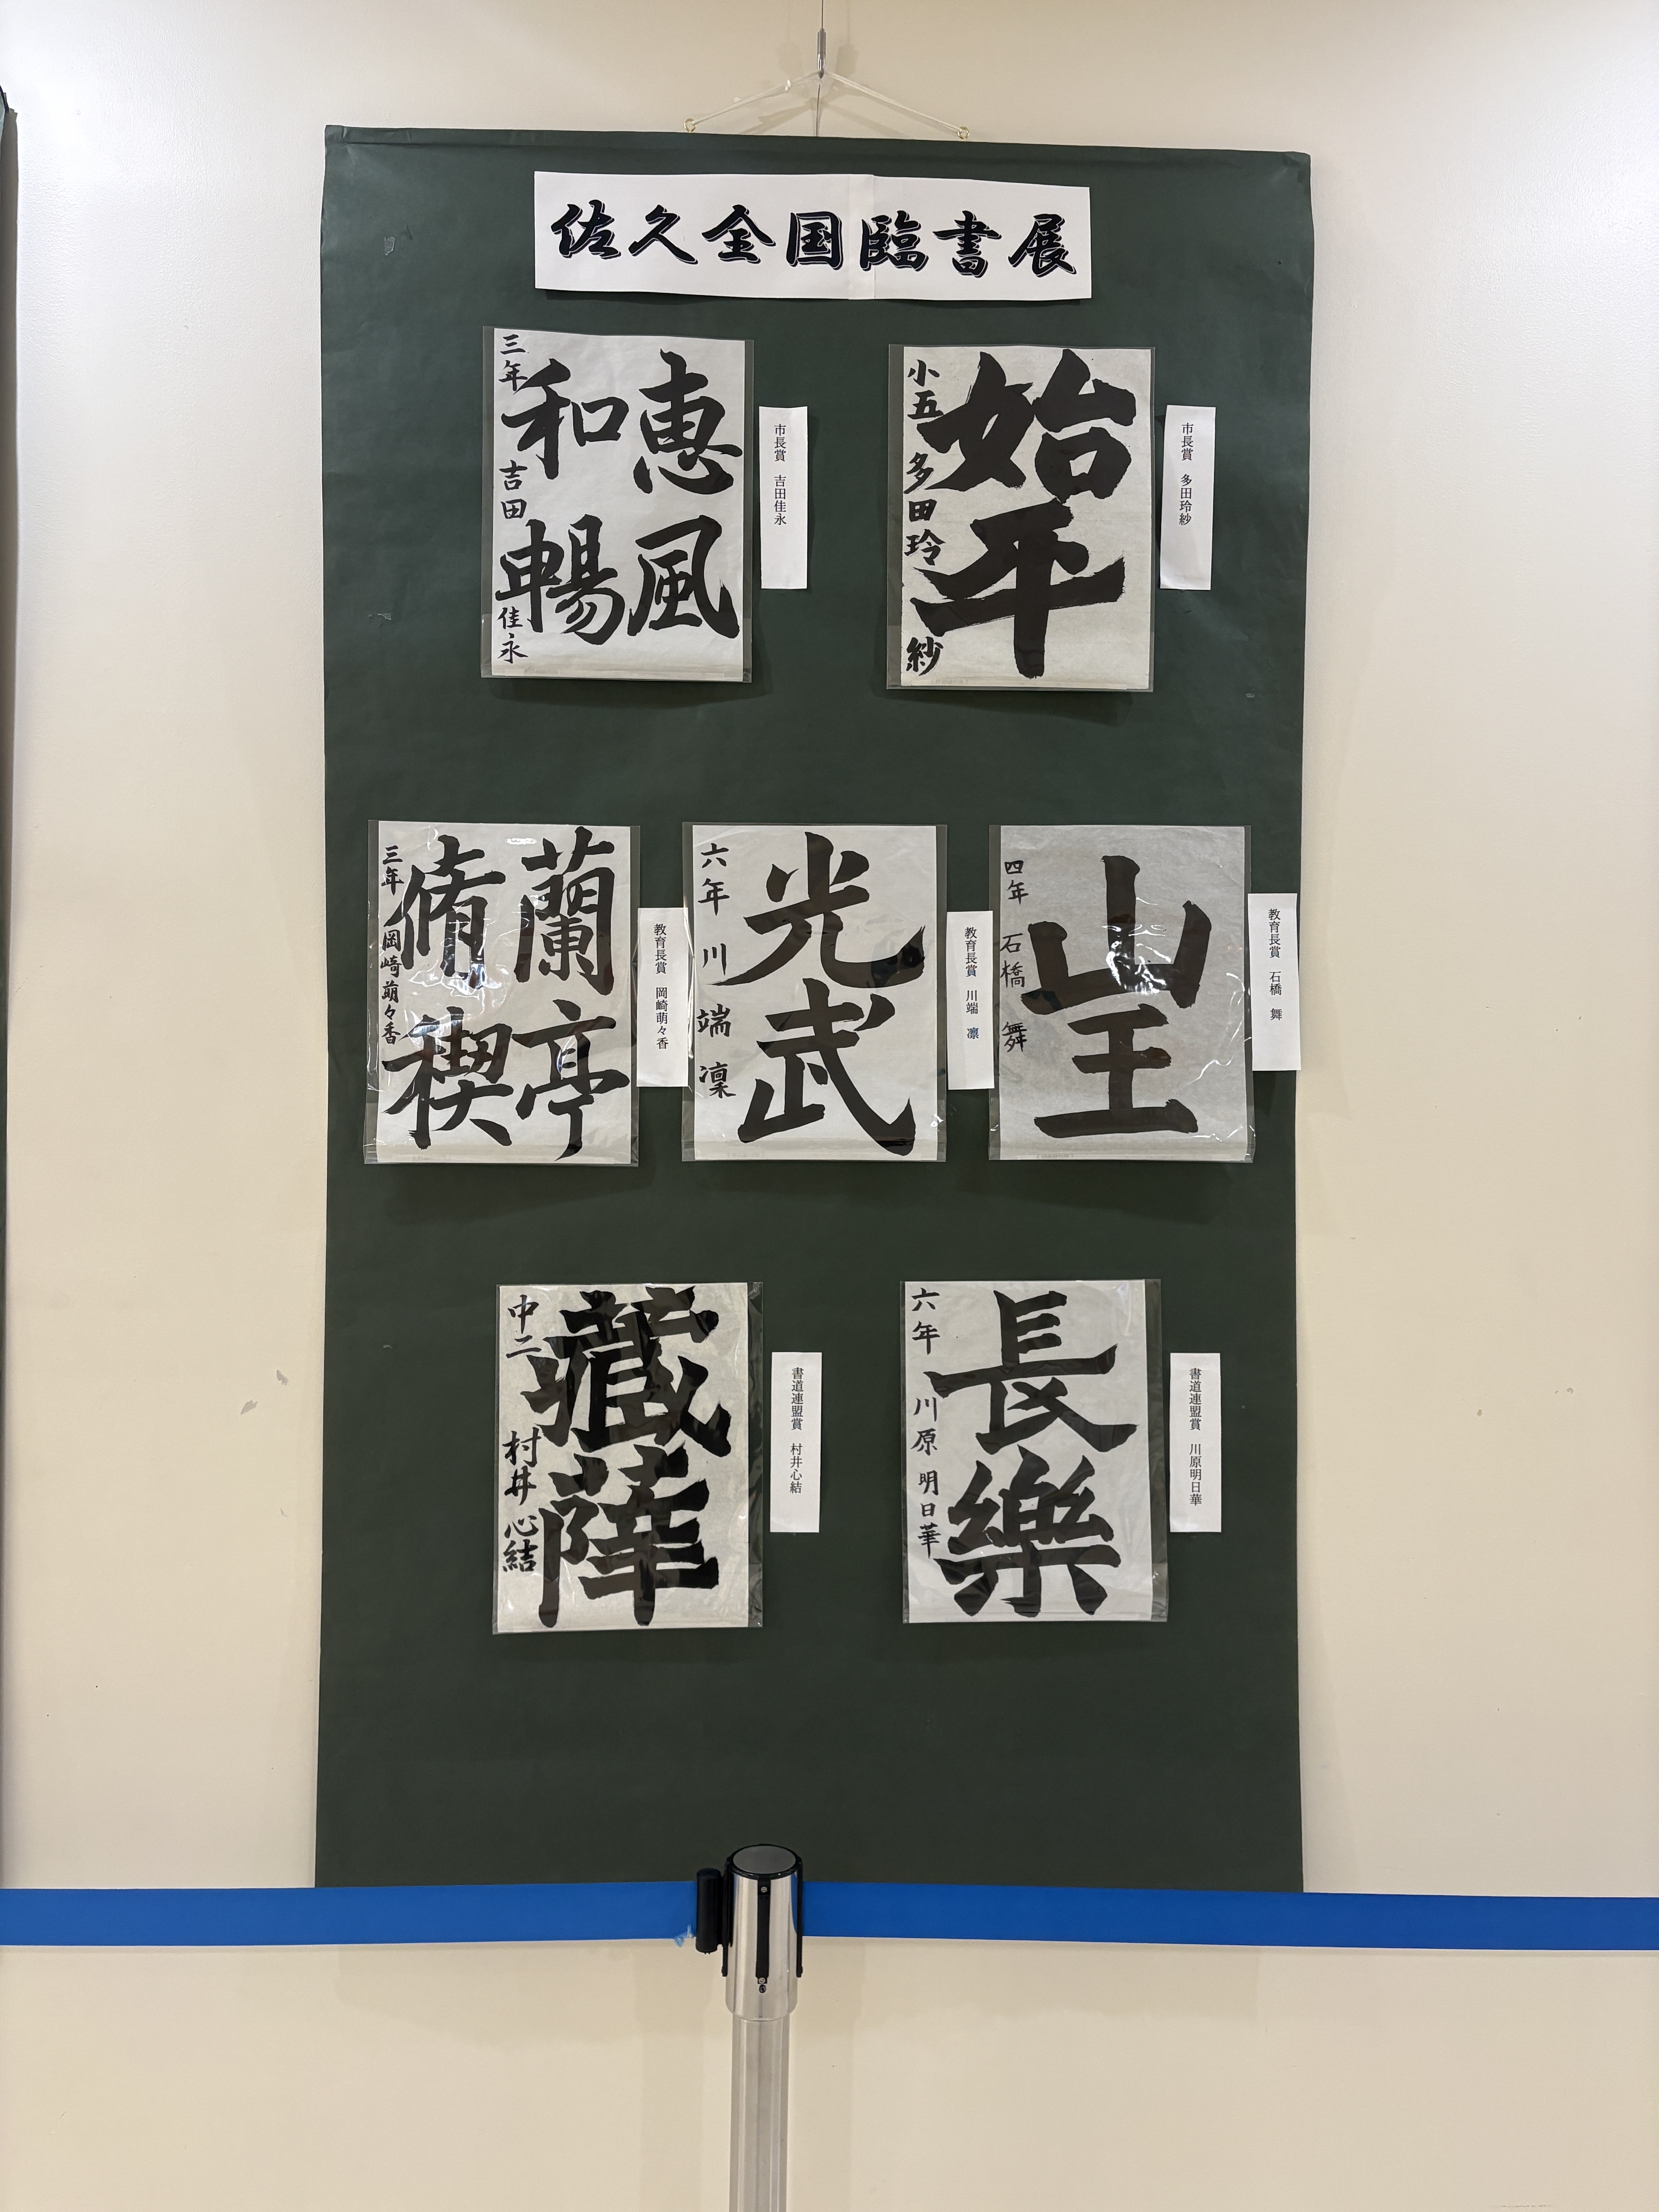 佐久全国臨書展
市長賞 多田玲紗
始平
小五 多田玲紗
市長賞 吉田佳永
恵風
和暢
三年 吉田佳永
教育長賞 石橋 舞
山王
四年 石橋 舞
教育長賞 川端 凛
光武
六年 川端 凜
教育長賞 岡崎萌々香
蘭亭
脩禊
三年 岡崎萌々香
書道連盟賞 川原明日華
長樂
六年 川原明日華
書道連盟賞 村井心結
中二 村井心結